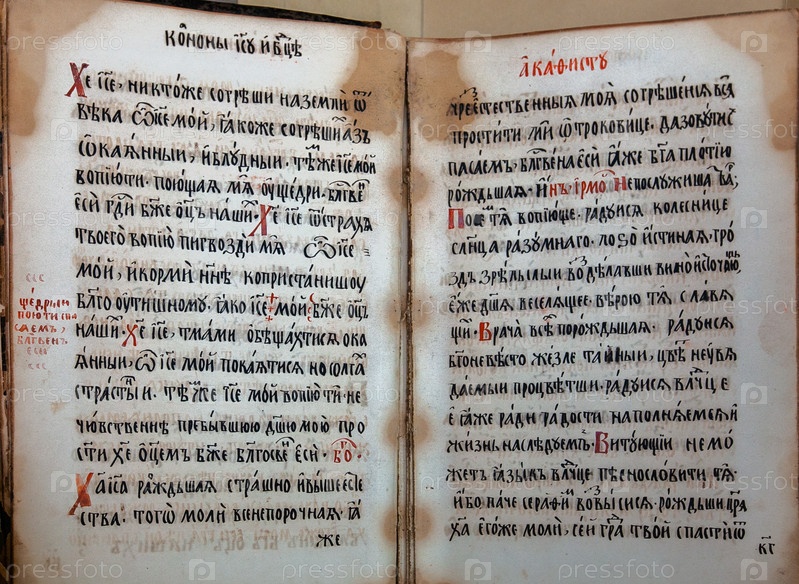 КѠНОНЫ ІСꙊ И БЦѢ
Хе ІСе, никтоже сотрѣши на земли ѿ
вѣка ѾІСе мой, ꙗкоже сотрѣши азъ
ѡкаꙗнный, и блꙋдный. тѣмже ІСе мой
вопїю ти. поющаѧ мѧ оущедри. блгвѣ
еси гди бже оцъ наши. Хе ІСе ѿ страха
твоего вопїю пигвозди мѧ ѾІСе
мой, и корми ннѣ ко пристанищоу
блгоꙋтишномꙋ. ꙗко ІСе мой бже оцъ
наши. Хе ІСе, тмами обѣщахтисѧ ока
ѧнный, ѾІСе мой покаѧтисѧ но солга
страстны и. тѣмже ІСе мой вопїю ти. не
чювственнѣ пребывшюю дшю мою про
сти Хе оцемъ бже блгосве еси. бо.
Ха Іса рождьшаѧ страшно и выше есте
ства. того моли всенепорочнаѧ. ꙗ
же
щедри
поюти
саемъ,
блгвен
еси
АКАФИСТꙊ
преестественныѧ моѧ согрѣшенїѧ всѧ
простити ми ѿроковице. да зовꙋти
пасаемъ, блгвена еси ꙗже бга плотїю
рождьшаѧ. и нъ. ірмо. Непослꙋжиша
Поще тѧ вопїюще. радꙋисѧ колеснице
слнца разꙋмнаго. лозо истинаѧ, гро
здъ зрѣлыи воздѣлавши вино источаю,
еже дшѧ веселѧщее. вѣрою тѧ славѧ
щи. Врача всѣ порождьшаѧ. радꙋисѧ
бгоневѣсто жезле таиныи, цвѣ неꙋвѧ
даемыи процвѣтши. радꙋисѧ влчце
еꙗже ради радости наполнѧемсѧ и
жизнь наслѣдꙋемъ. Витꙋющїи немо
жетъ ꙗзыкъ влчце пѣснословити тѧ.
ибо паче серафи возвысисѧ. рождьши црѧ
Ха егоже моли, сей гра твой спасти ѿ
кг